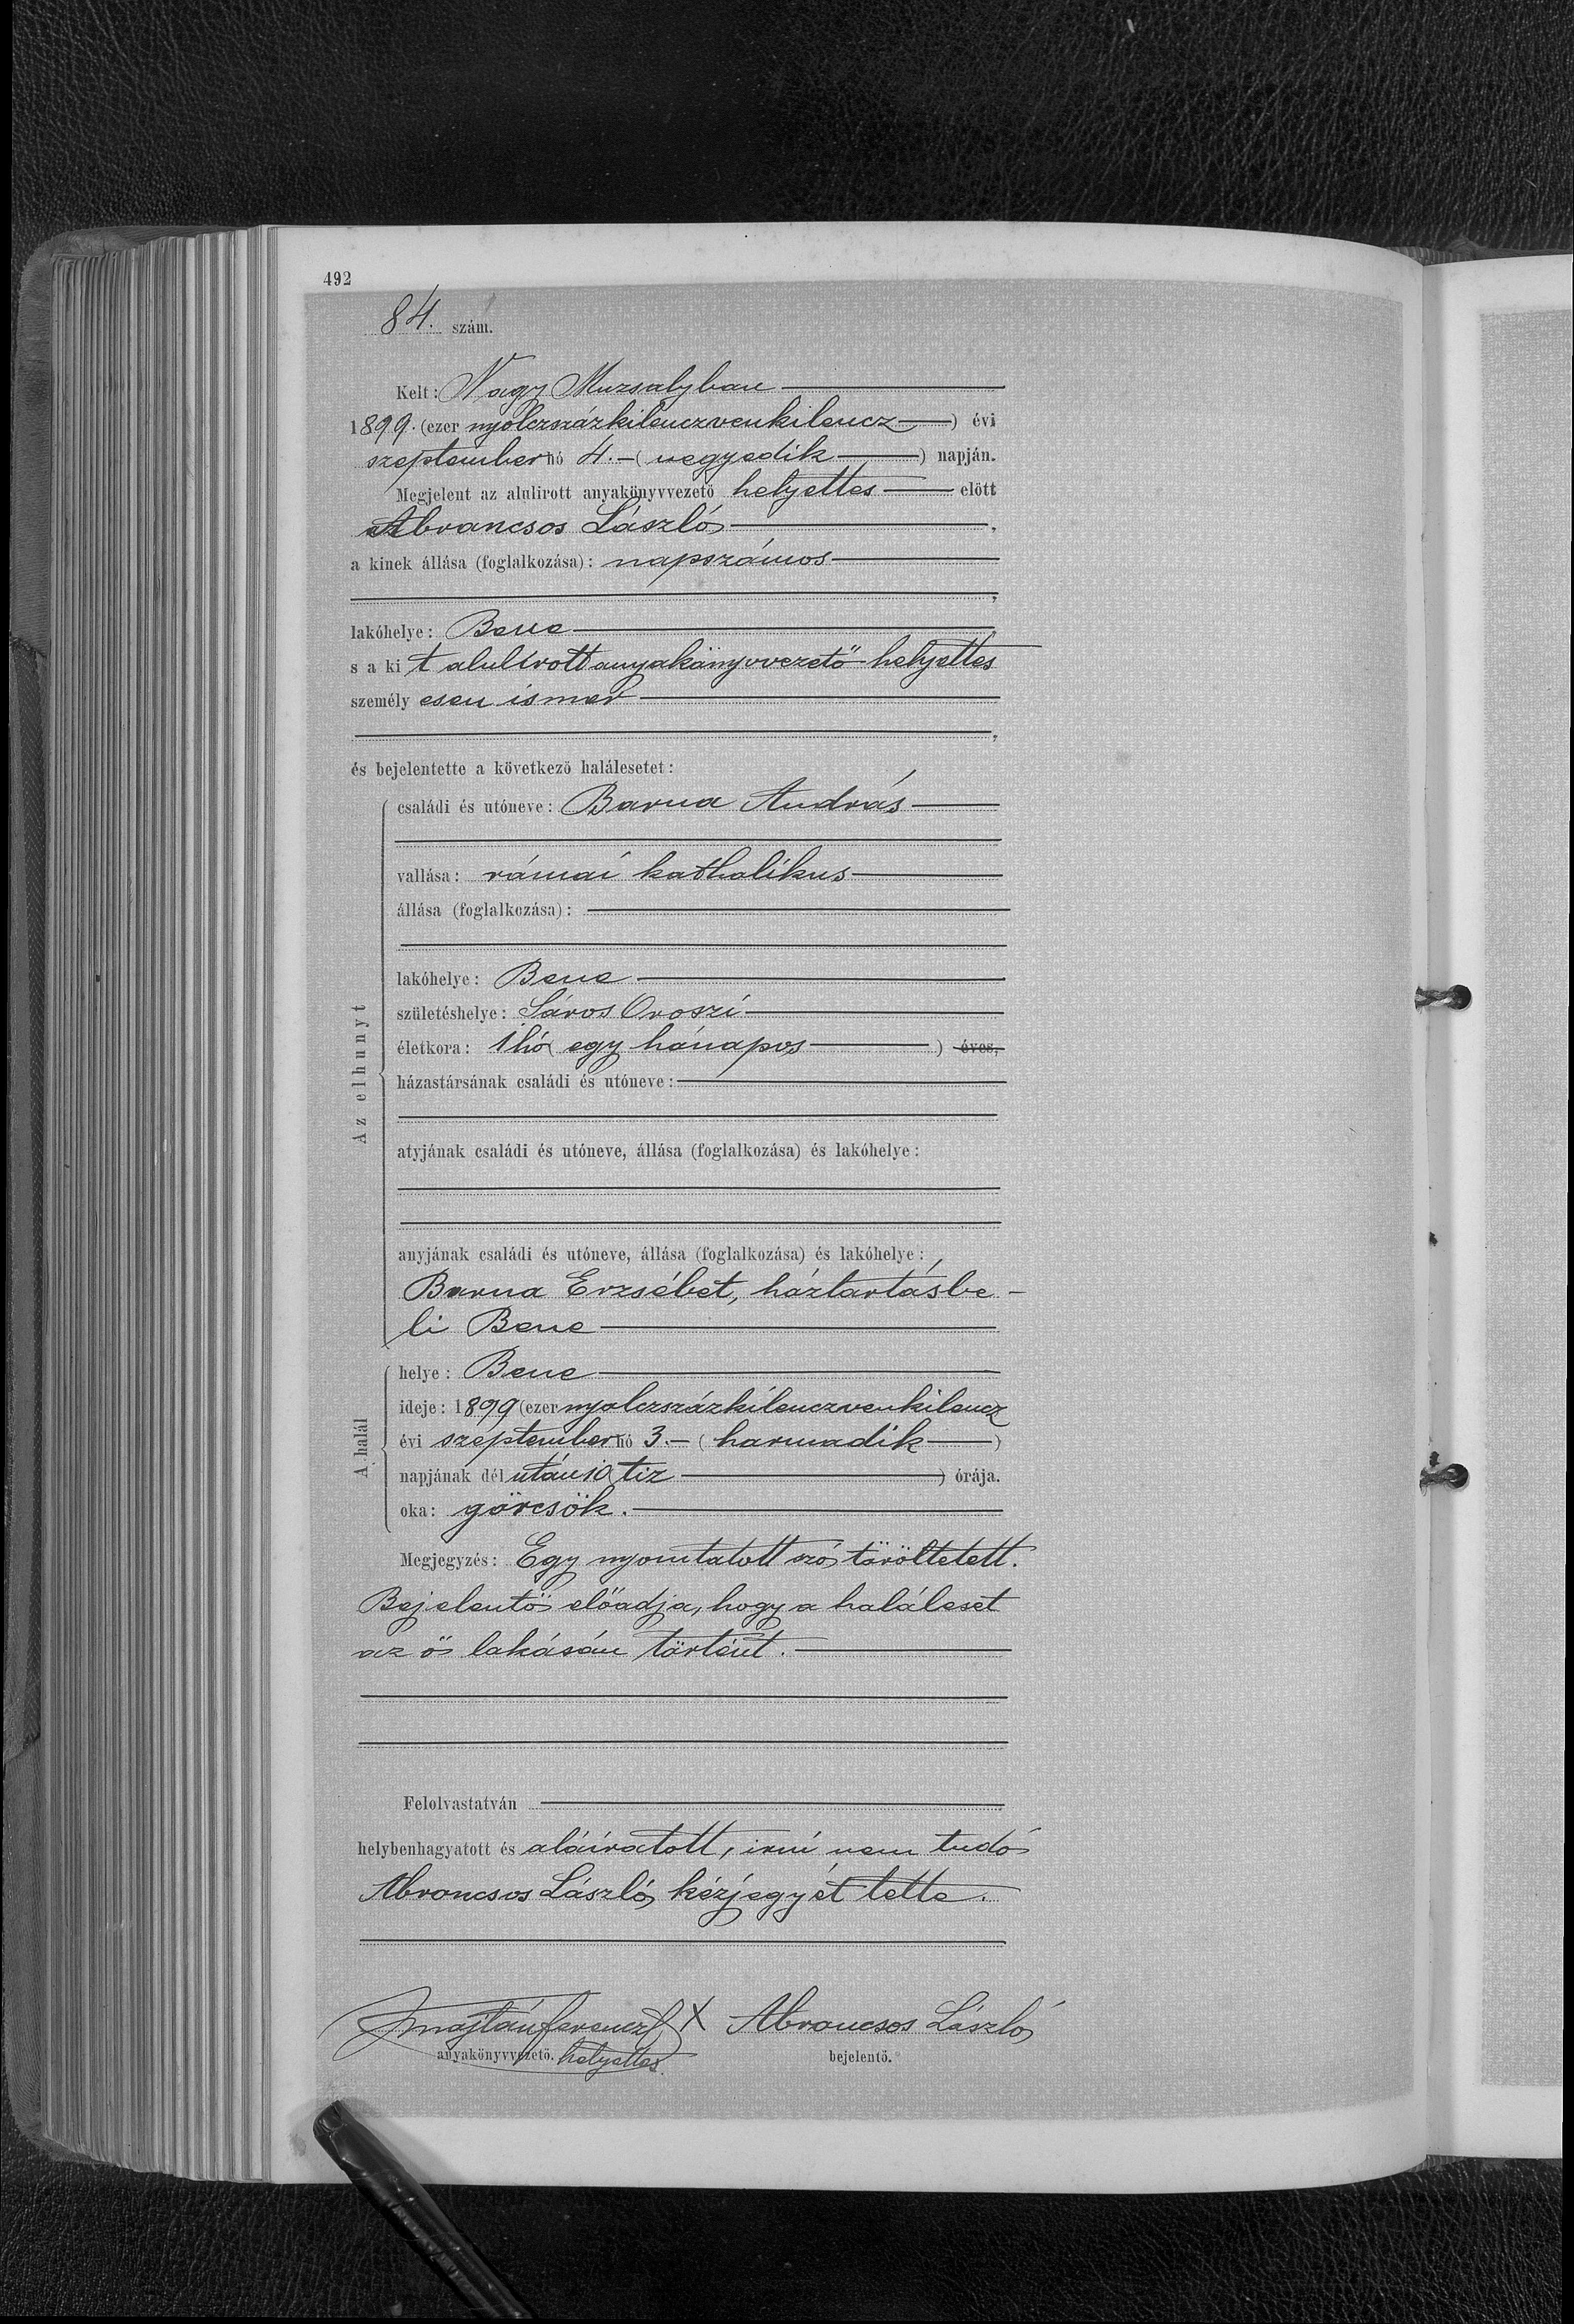 492
84. szám.
Kelt: Nagy Muzsalyban
1899. (ezer nyolczszázkilenczvenkilencz) évi
szeptember hó 4. - (negyedik) napján.
Megjelent az alulirott anyakönyvvezető helyettes előtt
Abrancsos László,
a kinek állása (foglalkozása): napszámos
,
lakóhelye: Bene
s a kit alulírott anyakönyvvezető helyettes
személyesen ismer
,
és bejelentette a következő halálesetet:
Az elhunyt
családi és utóneve: Barna András
vallása: római katholikus
állása (foglalkozása):
lakóhelye: Bene
születéshelye: Sáros Oroszi
életkora: 1 hó (egy hónapos) éves,
házastársának családi és utóneve:
atyjának családi és utóneve, állása (foglalkozása) és lakóhelye:
anyjának családi és utóneve, állása (foglalkozása) és lakóhelye:
Barna Erzsébet, háztartásbe-
li Bene
A halál
helye: Bene
ideje: 1899 (ezer nyolczszázkilenczvenkilencz
évi szeptember hó 3. - (harmadik)
napjának dél után 10 (tiz) órája.
oka: görcsök.
Megjegyzés: Egy nyomtatott szó töröltetett.
Bejelentő előadja, hogy a haláleset
az ő lakásán történt.
Felolvastatván
helybenhagyatott és aláíratott, irni nem tudó
Abrancsos László kézjegyét tette.
Majtán Ferencz X Abrancsos László
anyakönyvvezető. helyettes. bejelentő.